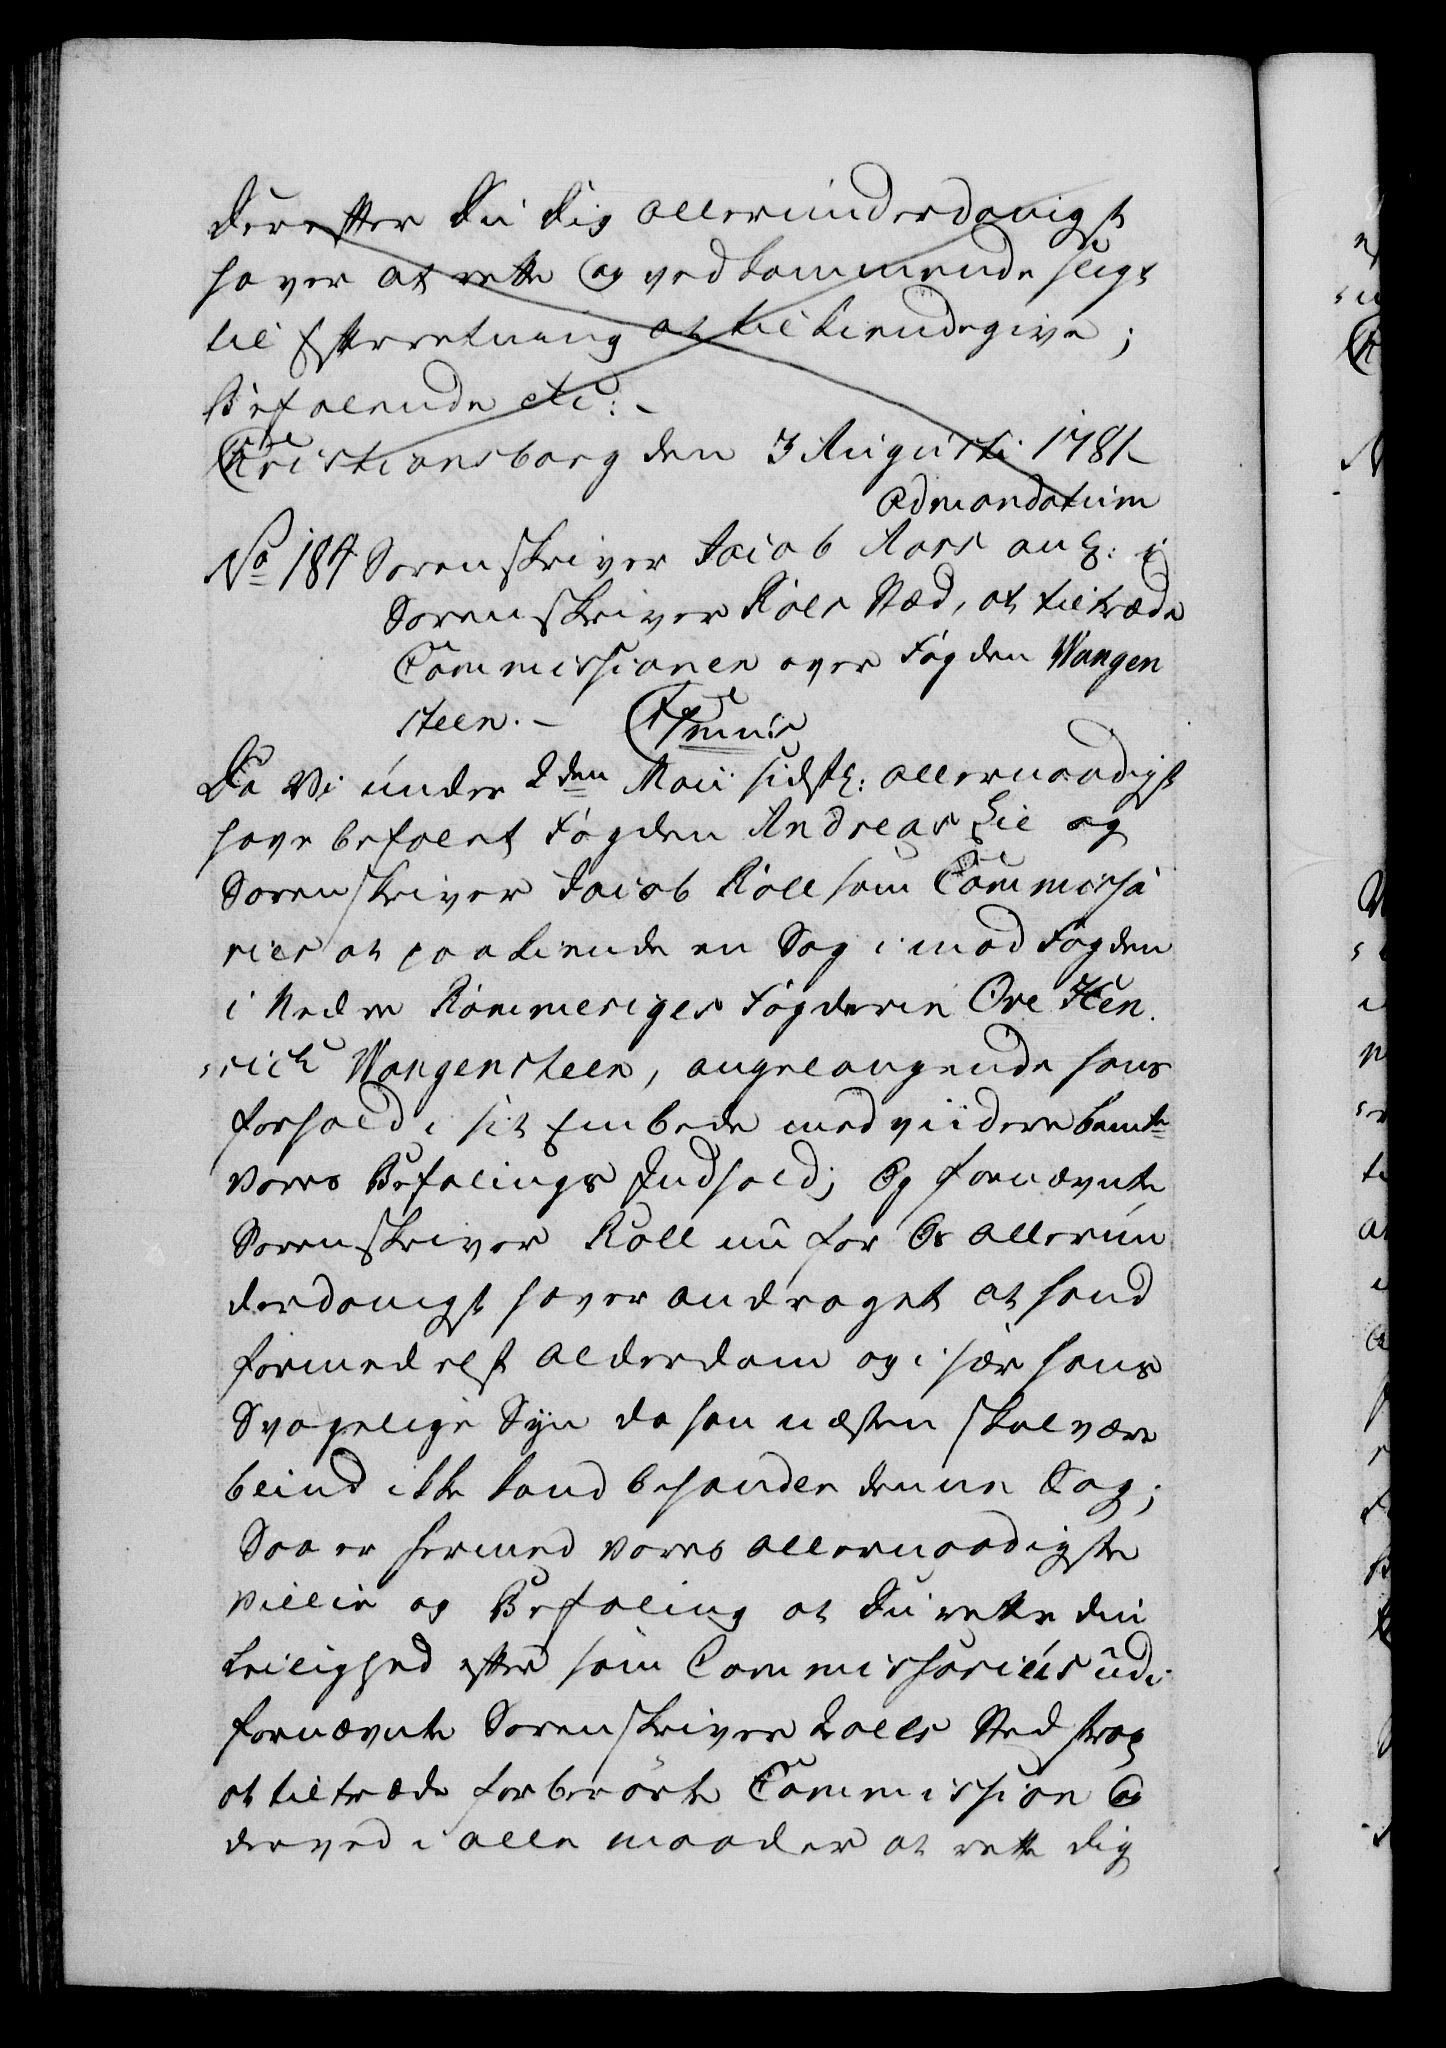 Derefter Du Dig allerunderdanigst
haver at rette og vedkommende sligt
til Efterretning at tilkiendegive;
Befalende etc:-
Christiansborg den 3 Augusti 1781
Admandatum
No 184 Sorenskriver Jacob Aars ang: i
Sorenskriver Rolls Stæd, at tiltræde
Commissionen over Fogden Wangen
steen.-
Da Vi under 2den Maii sidstl: allernaadigst
have befalet Fogden Andreas Lie og
Sorenskriver Jacob Roll som Commissa
rier at paakiende en Sag imod Fogden
i Nedre Rommeriges Fogderie Ove Hen
rich Wangensteen, angelangende hans
forhold i sit Embede med viidere bemte
Vores Befalings Indhold; Og fornævnte
Sorenskriver Roll nu for Os allerun
derdanigst haver andraget at hand
formedelst Alderdom og i sær hans
Svagelige Syn da han næsten skal være
blind ikke kand behandle denne Sag;
Saa er hermed Vores allernaadigste
Villie og Befaling at Du rette din
Leilighed efter som Commissarius udi
fornævnte Sorenskriver Rolls Sted strax
at tiltræde forberørte Commission Og
derved i alle maader at rette dig